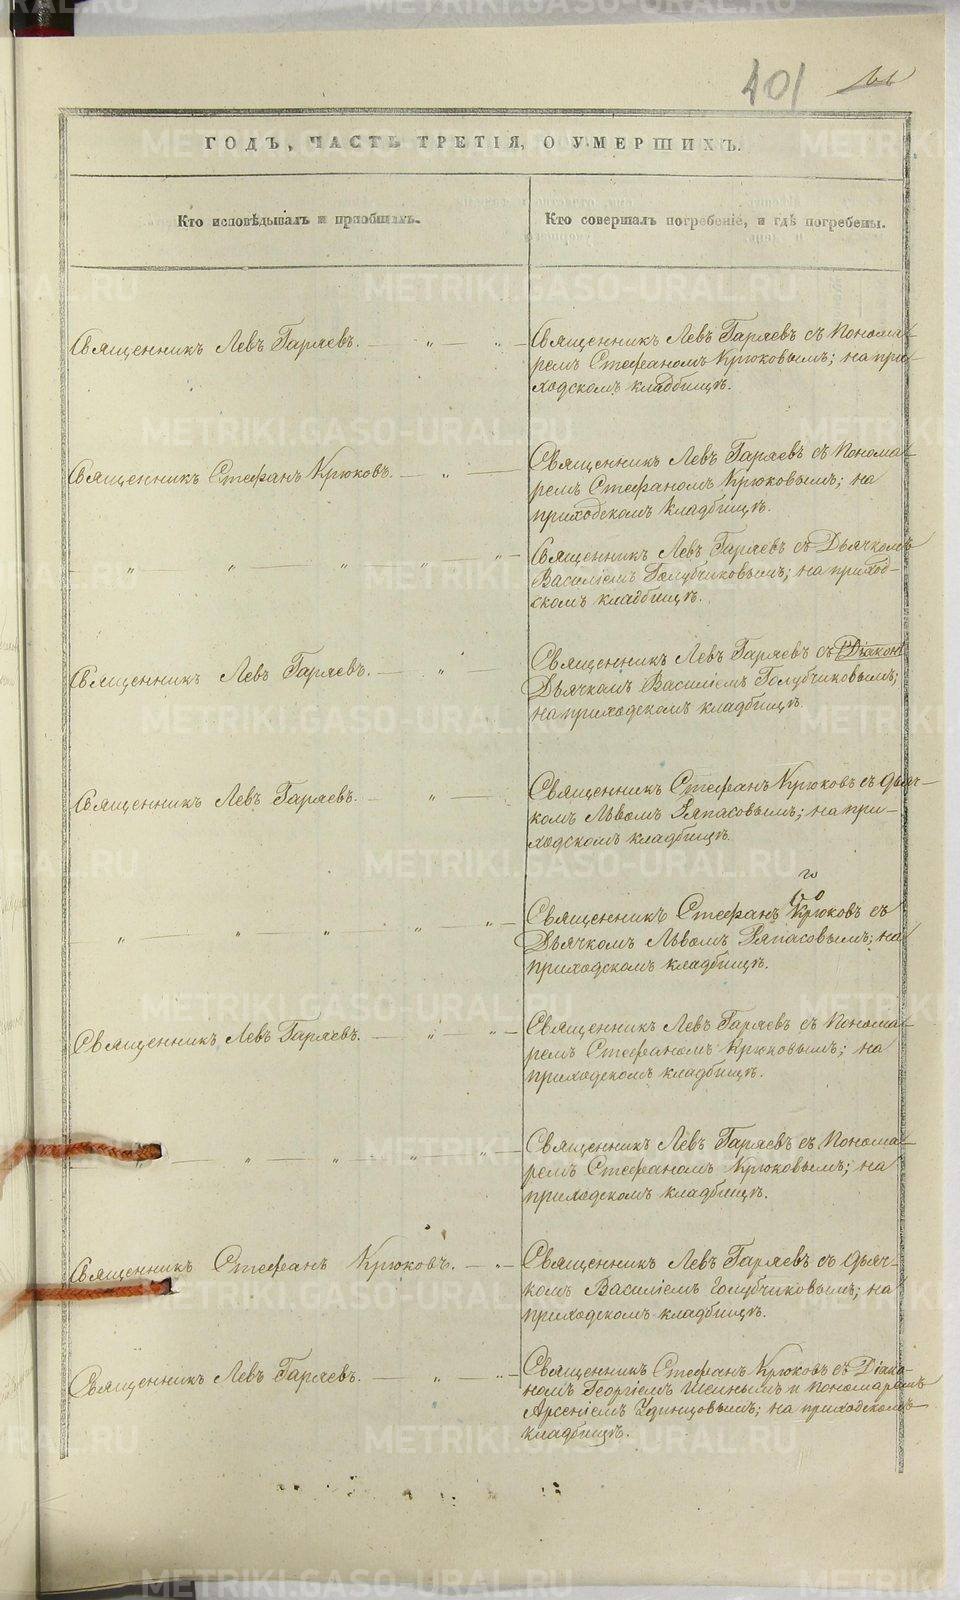 401
ГОДЪ, ЧАСТЬ ТРЕТІЯ, О УМЕРШИХЪ.
Кто исповѣдывалъ и пріобщалъ.
Кто совершалъ погребеніе, и гдѣ погребены.
Священникъ Левъ Гаряевъ. — „ — „ —
Священникъ Левъ Гаряевъ съ Понома-
ремъ Стефаномъ Крюковымъ; на при-
ходскомъ кладбищѣ.
Священникъ Стефанъ Крюковъ. — „ —
Священникъ Левъ Гаряевъ съ Понома-
ремъ Стефаномъ Крюковымъ; на
приходскомъ кладбищѣ.
— „ — „ — „ — „ — „ —
Священникъ Левъ Гаряевъ съ Дьячкомъ
Василіемъ Голубчиковымъ; на приход-
скомъ кладбищѣ.
Священникъ Левъ Гаряевъ. — „ —
Священникъ Левъ Гаряевъ съ Діакон
Дьячкомъ Василіемъ Голубчиковымъ;
на приходскомъ кладбищѣ.
Священникъ Левъ Гаряевъ. — „ —
Священникъ Стефанъ Крюковъ съ Дьяч-
комъ Львомъ Зяпасовымъ; на при-
ходскомъ кладбищѣ.
— „ — „ — „ — „ — „ —
Священникъ Стефанъ Крюковъ съ
Дьячкомъ Львомъ Зяпасовымъ; на
приходскомъ кладбищѣ.
Священникъ Левъ Гаряевъ. — „ — „ —
Священникъ Левъ Гаряевъ съ Понома-
ремъ Стефаномъ Крюковымъ; на
приходскомъ кладбищѣ.
— „ — „ — „ — „ — „ —
Священникъ Левъ Гаряевъ съ Понома-
ремъ Стефаномъ Крюковымъ; на
приходскомъ кладбищѣ.
Священникъ Стефанъ Крюковъ. — „ —
Священникъ Левъ Гаряевъ съ Дьяч-
комъ Василіемъ Голубчиковымъ; на
приходскомъ кладбищѣ.
Священникъ Левъ Гаряевъ. — „ — „ —
Священникъ Стефанъ Крюковъ съ Діако-
номъ Георгіемъ и Пономаремъ
Арсеніемъ Удинцовымъ; на приходскомъ
кладбищѣ.
METRIKI.GASO-URAL.RU